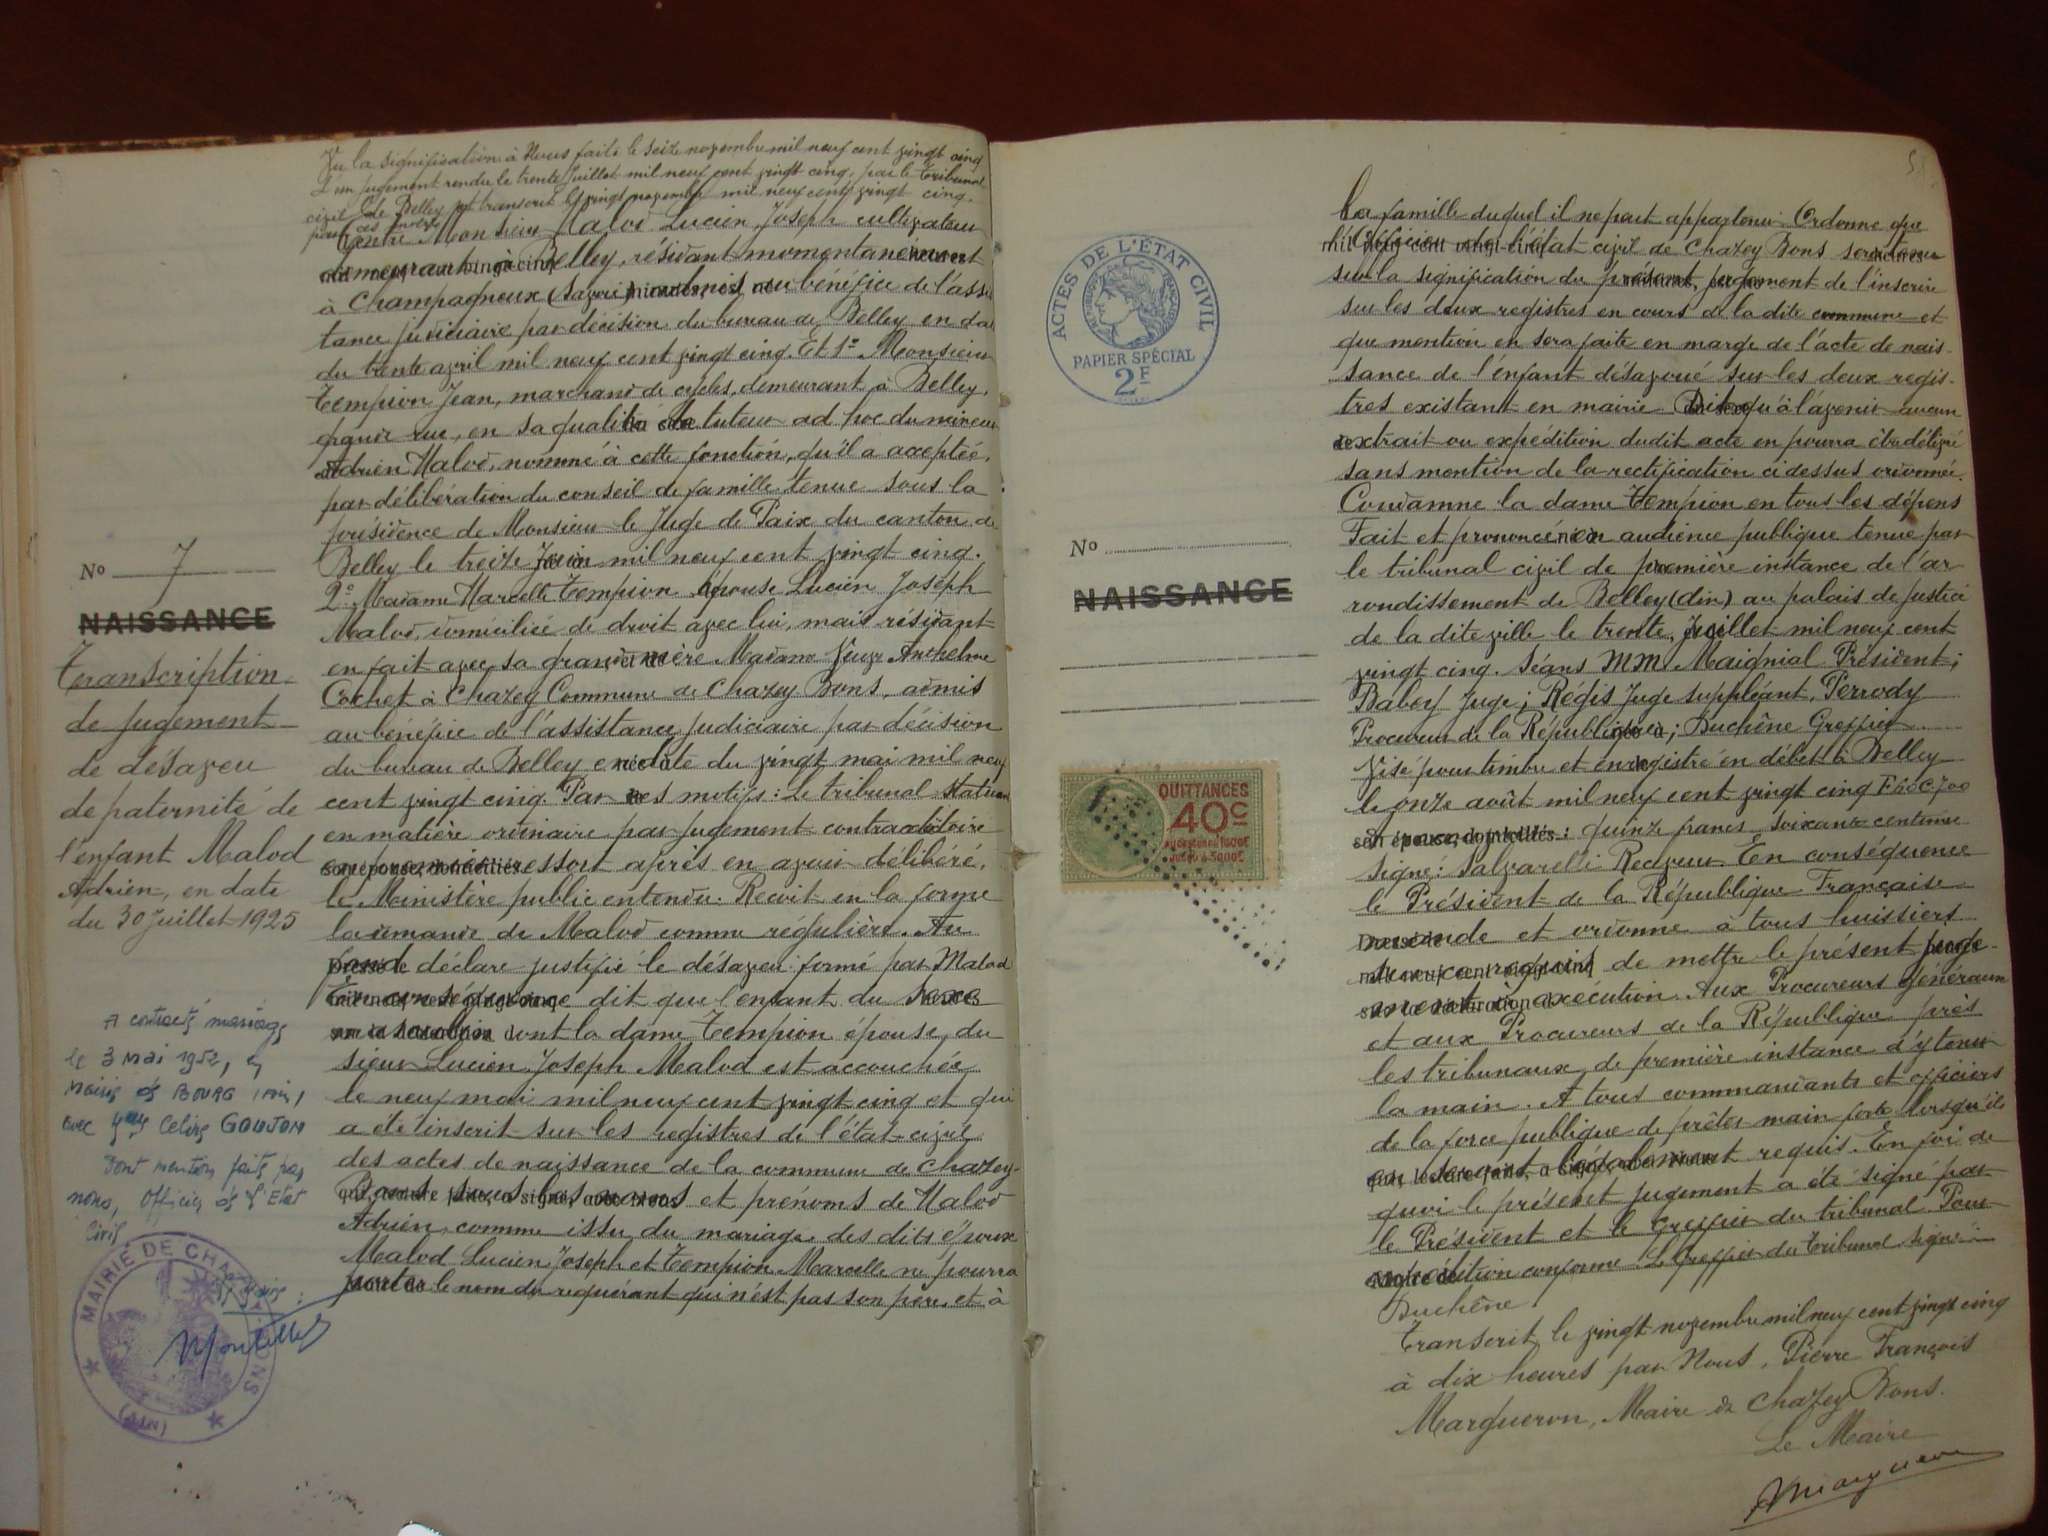 Vu la signification à Nous faite le seize novembre mil neuf cent vingt cinq
d'un jugement rendu le trente juillet mil neuf cent vingt cinq, par le tribunal
civil de Belley et transcrit le vingt novembre mil neuf cent vingt cinq.
Entre Monsieur Malod Lucien Joseph cultivateur
demeurant à Belley, résidant momentanément
à Champagneux (Savoie) admis au bénéfice de l'assis
tance judiciaire par décision du bureau de Belley en date
du trente avril mil neuf cent vingt cinq. Et 1º Monsieur
Tempion Jean, marchand de cycles, demeurant à Belley,
grande rue, en sa qualité de tuteur ad hoc du mineur
Adrien Malod, nommé à cette fonction, qu'il a acceptée,
par délibération du conseil de famille tenue sous la
présidence de Monsieur le Juge de Paix du canton de
Belley le treize juin mil neuf cent vingt cinq.
2º Madame Marcelle Tempion épouse Lucien Joseph
Malod, domiciliée de droit avec lui, mais résidant
en fait avec sa grand mère Madame Veuve Anthelme
Cochet à Chazey Commune de Chazey Bons, admis
au bénéfice de l'assistance judiciaire par décision
du bureau de Belley en date du vingt mai mil neuf
cent vingt cinq. Par ces motifs: Le tribunal statuan
en matière ordinaire par jugement contradictoire
en premier ressort après en avoir délibéré,
le Ministère public entendu. Recoit en la forme
la demande de Malod comme régulière. Au
fond déclare justifié le désaveu formé par Malod
En conséquence dit que l'enfant du sexe
masculin dont la dame Tempion épouse du
sieur Lucien Joseph Malod est accouchée
le neuf mai mil neuf cent vingt cinq et qui
a été inscrit sur les registres de l'état-civil
des actes de naissance de la commune de Chazey-
Bons sous les noms et prénoms de Malod
Adrien, comme issu du mariage des dits époux
Malod Lucien Joseph et Tempion Marcelle ne pourra
porter le nom du requérant qui n'est pas son père et à
No 7
NAISSANCE
Transcription
de jugement
de désaveu
de paternité de
l'enfant Malod
Adrien, en date
du 30 juillet 1925
A contracté mariage
le 3 Mai 1952, en
Mairie de BOURG (Ain)
avec Celine GOUJON
Dont mention faite par
nous, Officier de l'Etat
Civil
MAIRIE DE CHAZEY BONS
(AIN)
ACTES DE L'ÉTAT CIVIL
PAPIER SPÉCIAL
2F
No
NAISSANCE
QUITTANCES
40c
la famille duquel il ne peut appartenir. Ordonne que
l'officier de l'état civil de Chazey Bons sera tenu
sur la signification du présent jugement de l'inscrire
sur les deux registres en cours de la dite commune et
que mention en sera faite en marge de l'acte de nais-
sance de l'enfant désavoué sur les deux regis-
tres existant en mairie. Dit qu'à l'avenir aucun
extrait ou expédition dudit acte en pourra être délivré
sans mention de la rectification ci dessus ordonnée.
Condamne la dame Tempion en tous les dépens
Fait et prononcé en audience publique tenue par
le tribunal civil de première instance de l'ar
rondissement de Belley (Ain) au palais de justice
de la dite ville le trente juillet mil neuf cent
vingt cinq. Séans MM. Maignial Président;
Babey Juge; Régis Juge suppléant, Perrody
Procureur de la République; Duchêne Greffier
Visé pour timbre et enregistré en débet à Belley
le onze août mil neuf cent vingt cinq F68C700
quinze francs soixante centime
signé: Salvarelli Receveur. En conséquence
le Président de la République Française
mande et ordonne à tous huissiers
sur ce requis de mettre le présent juge-
ment à exécution. Aux Procureurs généraux
et aux Procureurs de la République près
les tribunaux de première instance d'y tenir
la main. A tous commandants et officiers
de la force publique de prêter main forte lorsqu'ils
en seront légalement requis. En foi de
quoi le présent jugement a été signé par
le Président et le Greffier du tribunal. Pour
expédition conforme Le Greffier du tribunal signé:
Duchêne
Transcrit le vingt novembre mil neuf cent vingt cinq
à dix heures par Nous, Pierre François
Margueron, Maire de Chazey Bons.
Le Maire
Margueron